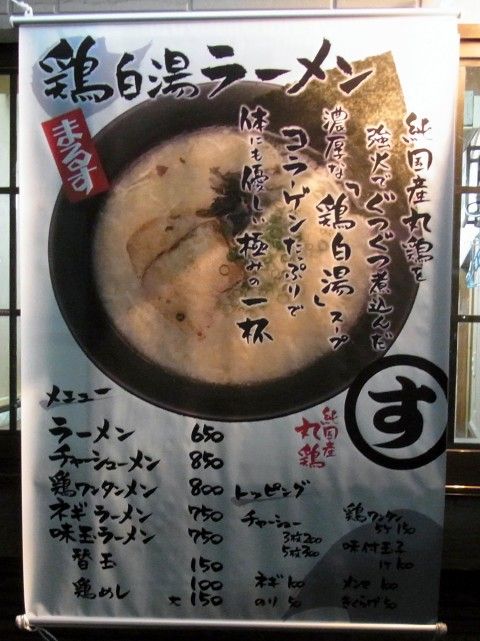 鶏白湯ラーメン
まるす
純国産丸鶏を
強火でぐつぐつ煮込んだ
濃厚な「鶏白湯」スープ
コラーゲンたっぷりで
体にも優しい極みの一杯
す
純国産
丸鶏
メニュー
ラーメン 650
チャーシューメン 850
鶏ワンタンメン 800
ネギラーメン 750
味玉ラーメン 750
替玉 150
鶏めし 100
大 150
トッピング
チャーシュー
3枚 200
5枚 300
ネギ 100
のり 50
鶏ワンタン
5ケ 150
味付玉子
1ケ 100
メンマ 100
きくらげ 50